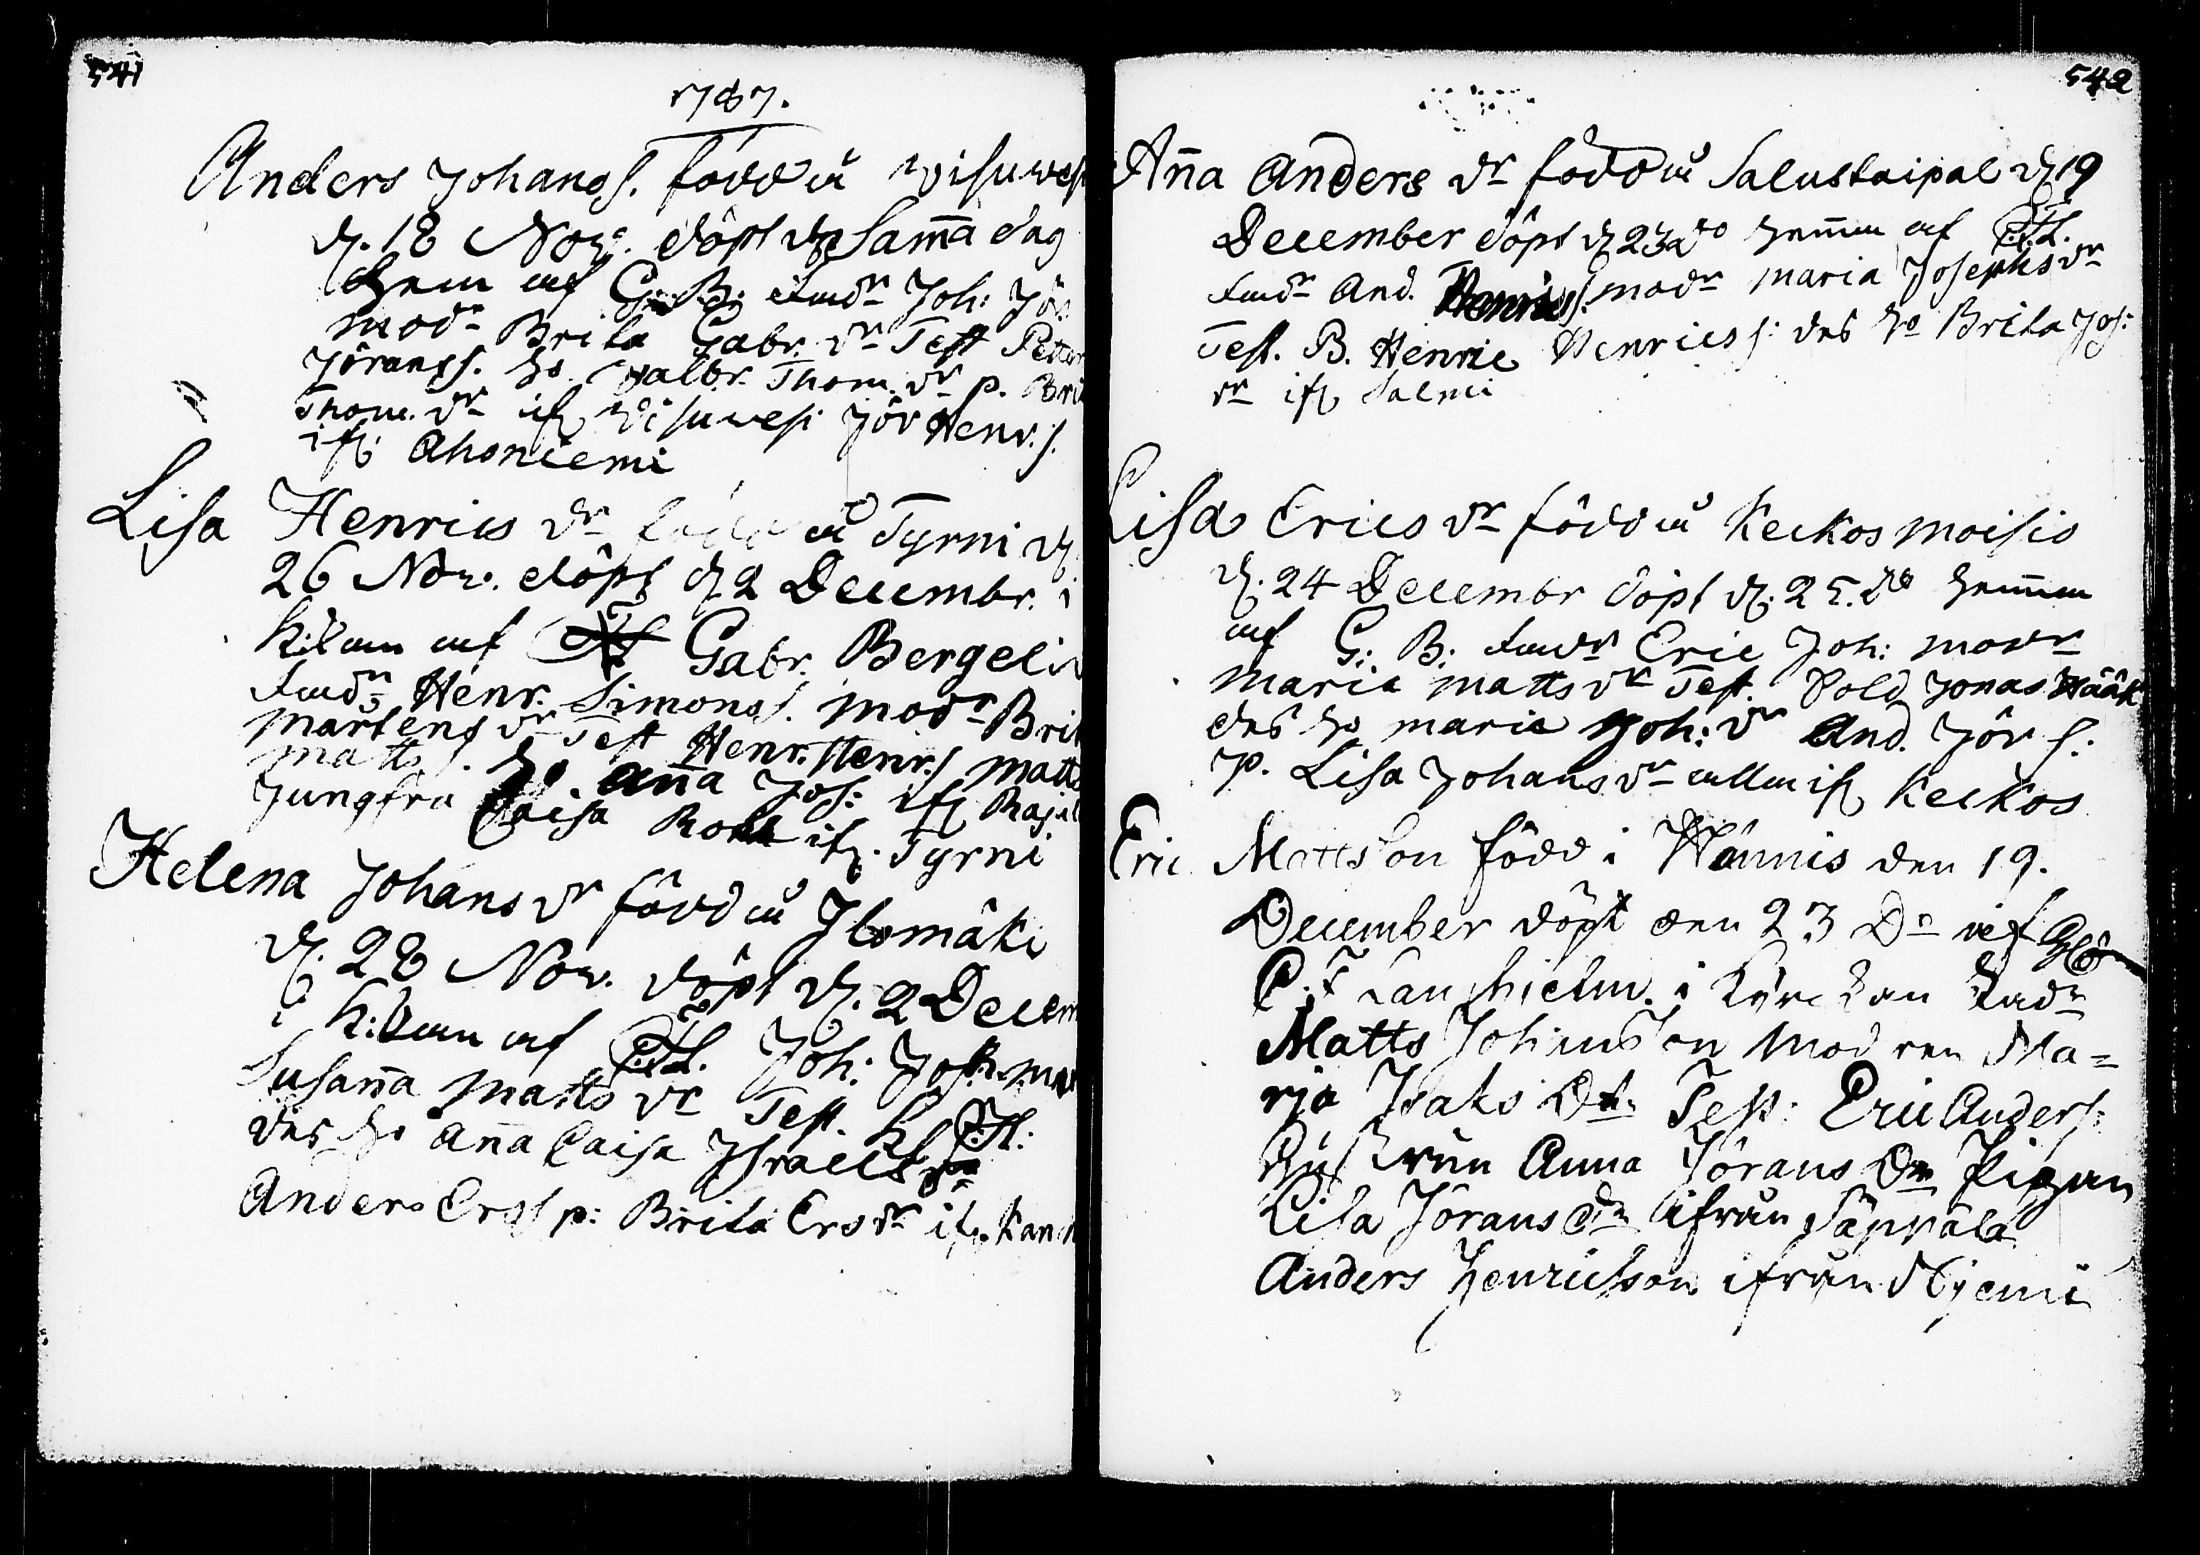 541
1787.
Anders Johanss. född i Wisuwesi
d. 18 Nov. döpt dn Samma dag
hem af G: B: fadr Joh: Jör
modr Brita Gabr. dr Test Petter
Jöranss. ho Walbr. Thom. dr p. Bri
Thom. dr ifr Wisuwesi Jör Henr. s.
ifr Ahoniemi
Lisa Henrics dr född i Tyrni d
26 Nov. döpt d 2 Decembr. i
K:kan af Gabr. Bergeli
fadr Henr. Simons s. modr Brit
Mårtens dr Test Henr. Henr. s Matts
Matts s. ho Anna Jos: ifr Raja
Jungfru Caisa ifr. Tyrni
Helena Johans dr född i Ilomäki
d. 28 Nov. döpt d. 2 Decem
i K:kan af C.F.L. Joh: Joh. mod
Susanna Matts dr Test. K C.F.L:
des ho Anna Caisa Israels dr
Anders Ers s p: Brita Ers dr ifr. Kan
542
Anna Anders dr född i Salustaipal d 19
December döpt d 23 do hemma af C.F.L.
fadr And. Henrics s. modr Maria Josephs dr
Test. B. Henric Henrics s: des ho Brita Jos:
dr ifr Salmi
Lisa Erics dr född i Keckos moisio
d. 24 Decembr döpt d. 25. do hemma
af G: B: fadr Eric Joh: modr
Maria Matts dr Test. Sold Jonas Hååk
des ho Maria Joh: dr And. Jör s:
p. Lisa Johans dr alla ifr Keckos
Eric Mattsson född i Hännis den 19.
December döpt den 23 Do af
C. F Langhielm. i Kyrckan Fadr
Matts Johansson Modren Ma=
ria Isaks Dr Test: Eric Anders:
Hustrun Anna Jörans Dr Pigan
Lisa Jörans Dr ifrån Säppälä
Anders Henrichson ifrån Niemi